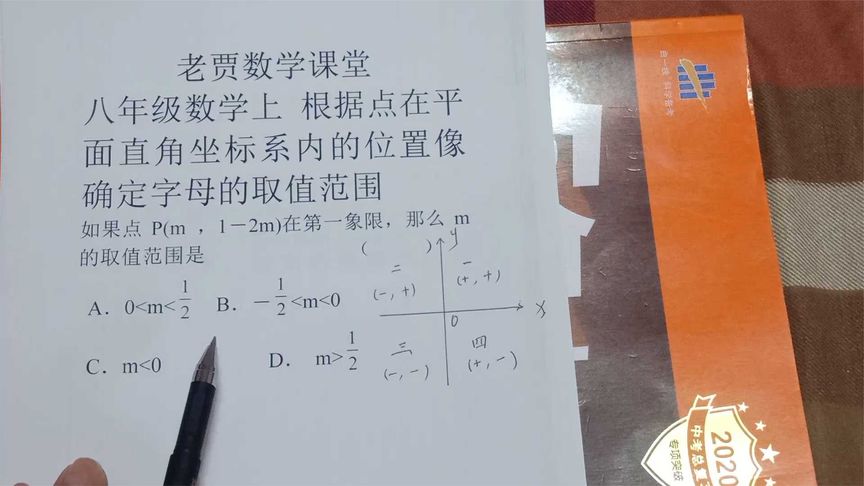 老贾数学课堂
八年级数学上 根据点在平
面直角坐标系内的位置像
确定字母的取值范围
如果点 P(m ，1－2m)在第一象限，那么 m
的取值范围是 ( )
A．0<m<1/2 B．－1/2<m<0
C．m<0 D．m>1/2
y
二 一
(-,+) (+,+)
x
0
三 四
(-,-) (+,-)
2020
中考总复
专项突破